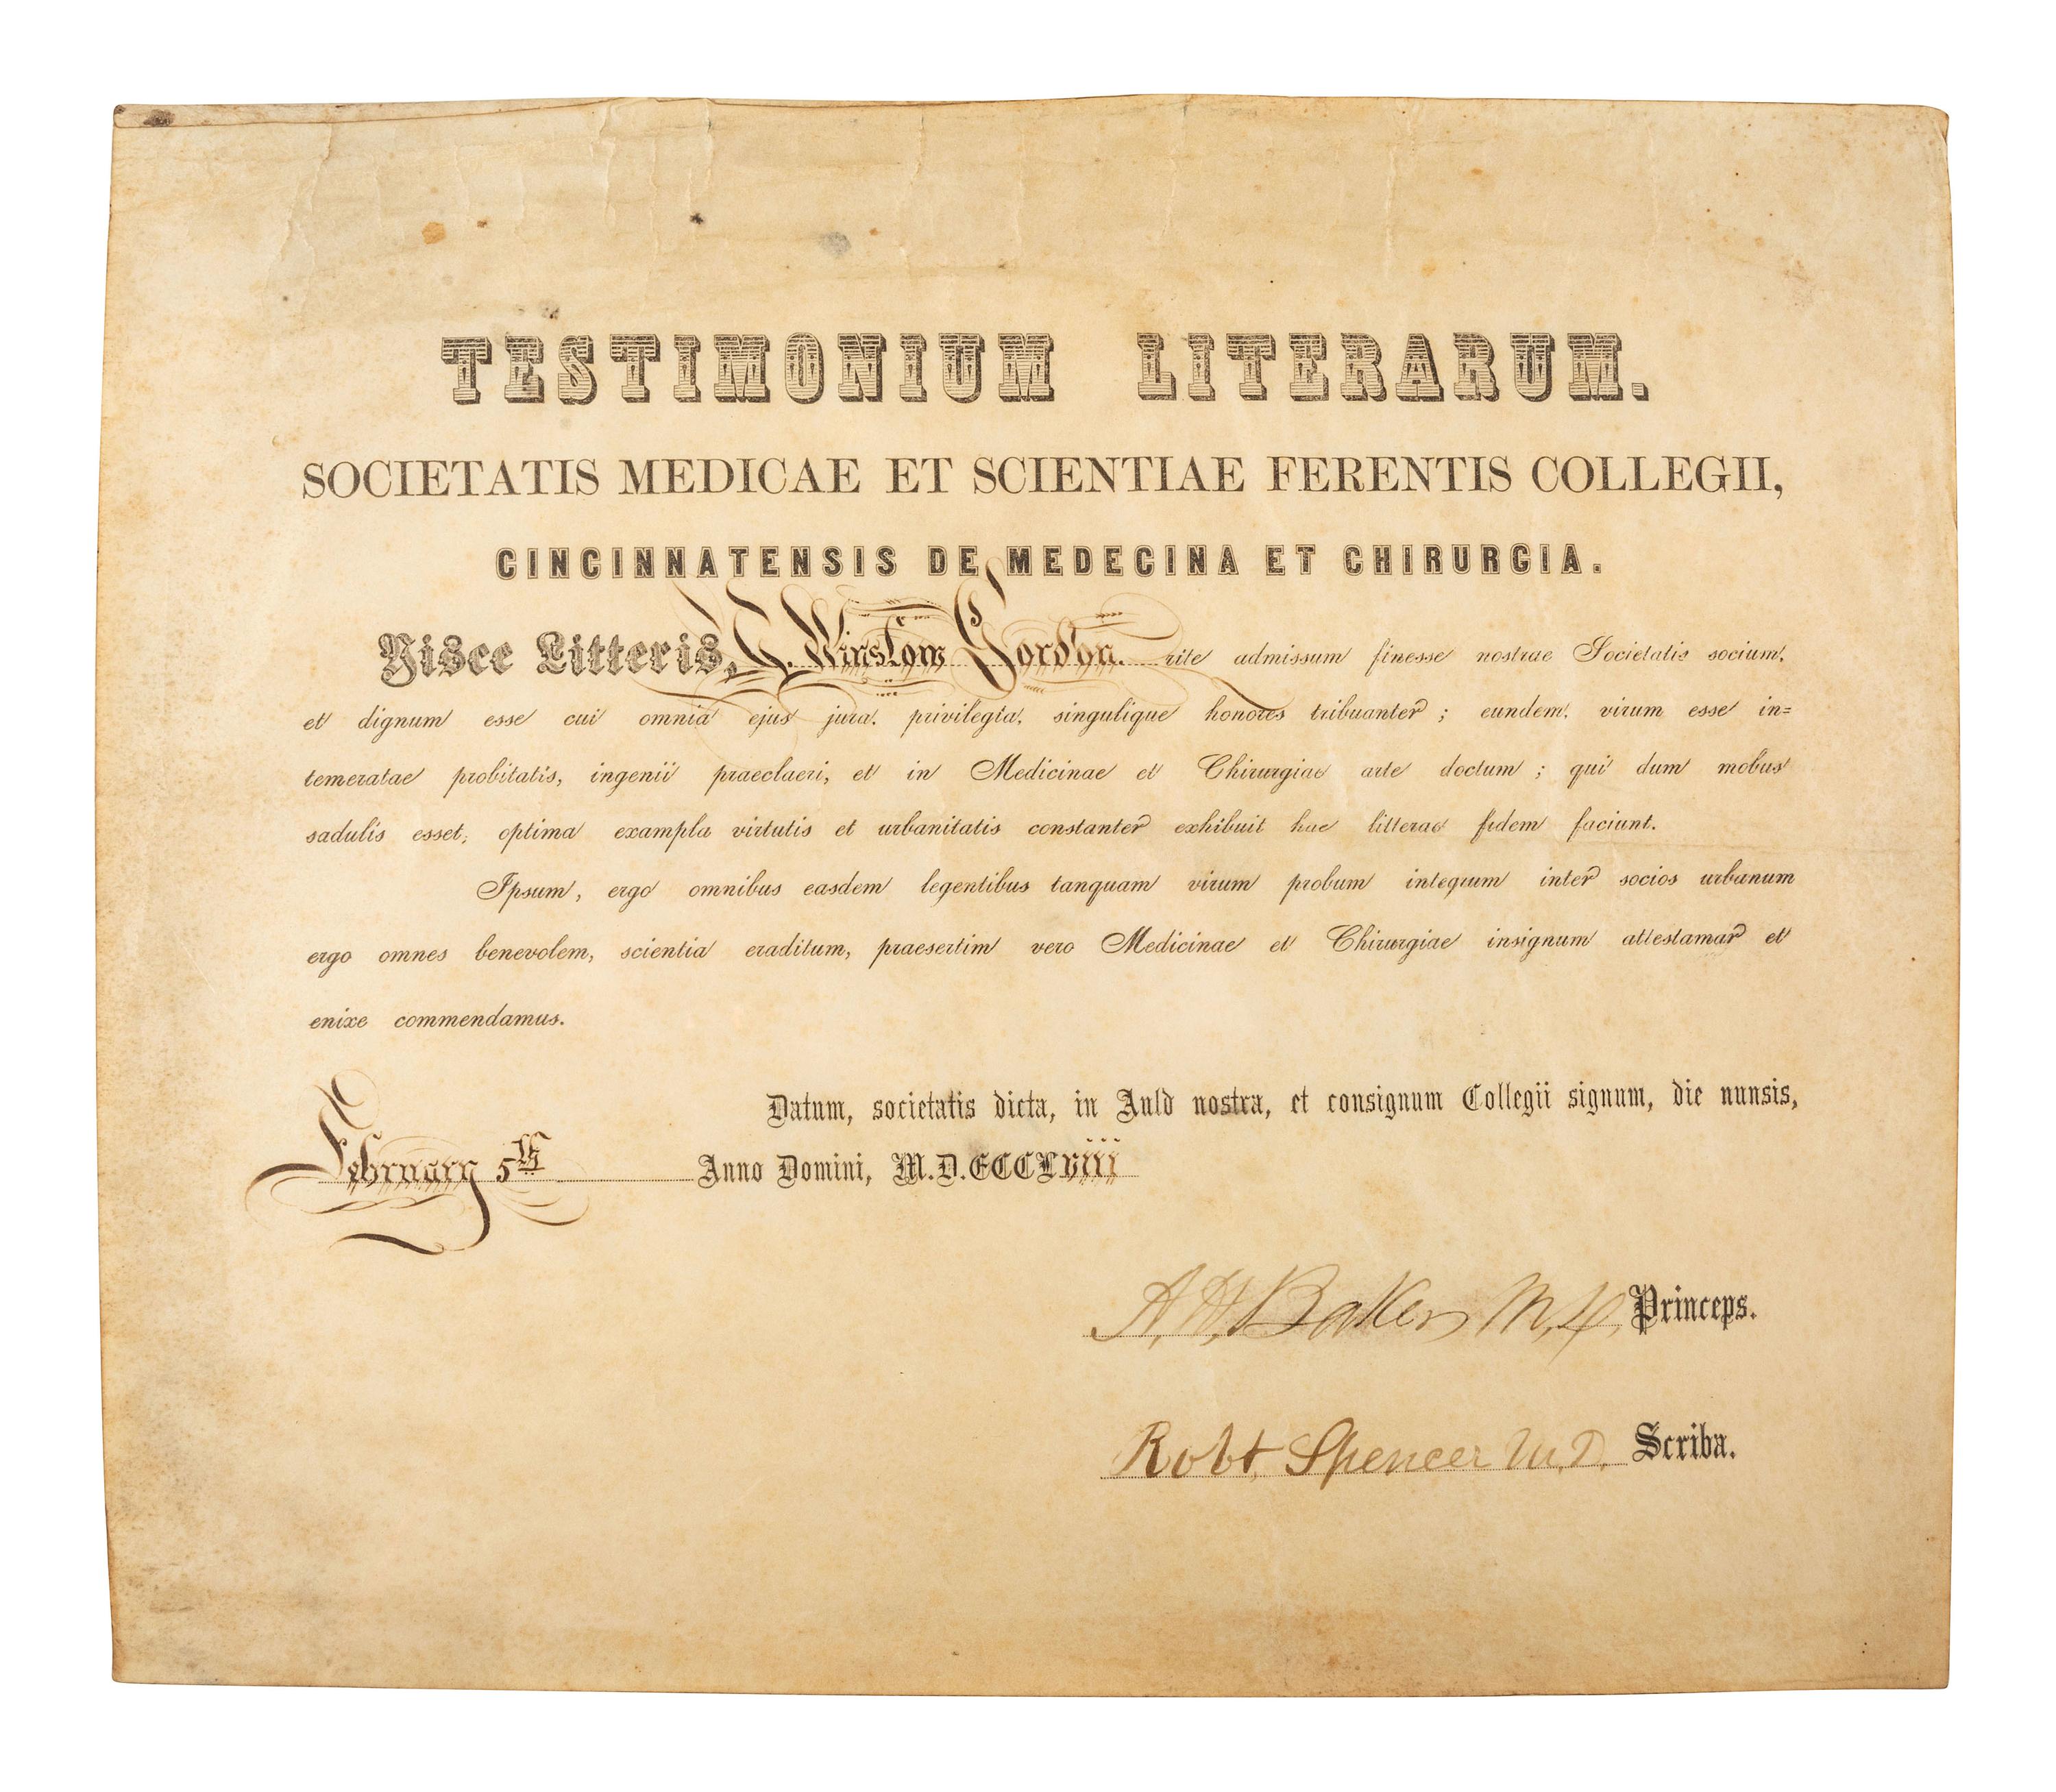 TESTIMONIUM LITERARUM.
SOCIETATIS MEDICAE ET SCIENTIAE FERENTIS COLLEGII,
CINCINNATENSIS DE MEDECINA ET CHIRURGIA.
Hisce Litteris, Winslow Gordon. rite admissum finesse nostrae Societatis socium,
et dignum esse cui omnia ejus jura, privilegia, singulique honores tribuanter; eundem, virum esse in=
temeratae probitatis, ingenii praeclaeri, et in Medicinae et Chirurgiae arte doctum; qui dum mobus
sadulis esset, optima exampla virtutis et urbanitatis constanter exhibuit hae litterae fidem faciunt.
Ipsum, ergo omnibus easdem legentibus tanquam virum probum integrum inter socios urbanum
ergo omnes benevolem, scientia eraditum, praesertim vero Medicinae et Chirurgiae insignum attestamar et
enixe commendamus.
Datum, societatis dicta, in Auld nostra, et consignum Collegii signum, die nunsis,
February 5th Anno Domini, M.D.CCCLviii
A. H. Baker M.D. Princeps.
Robt Spencer M.D. Scriba.